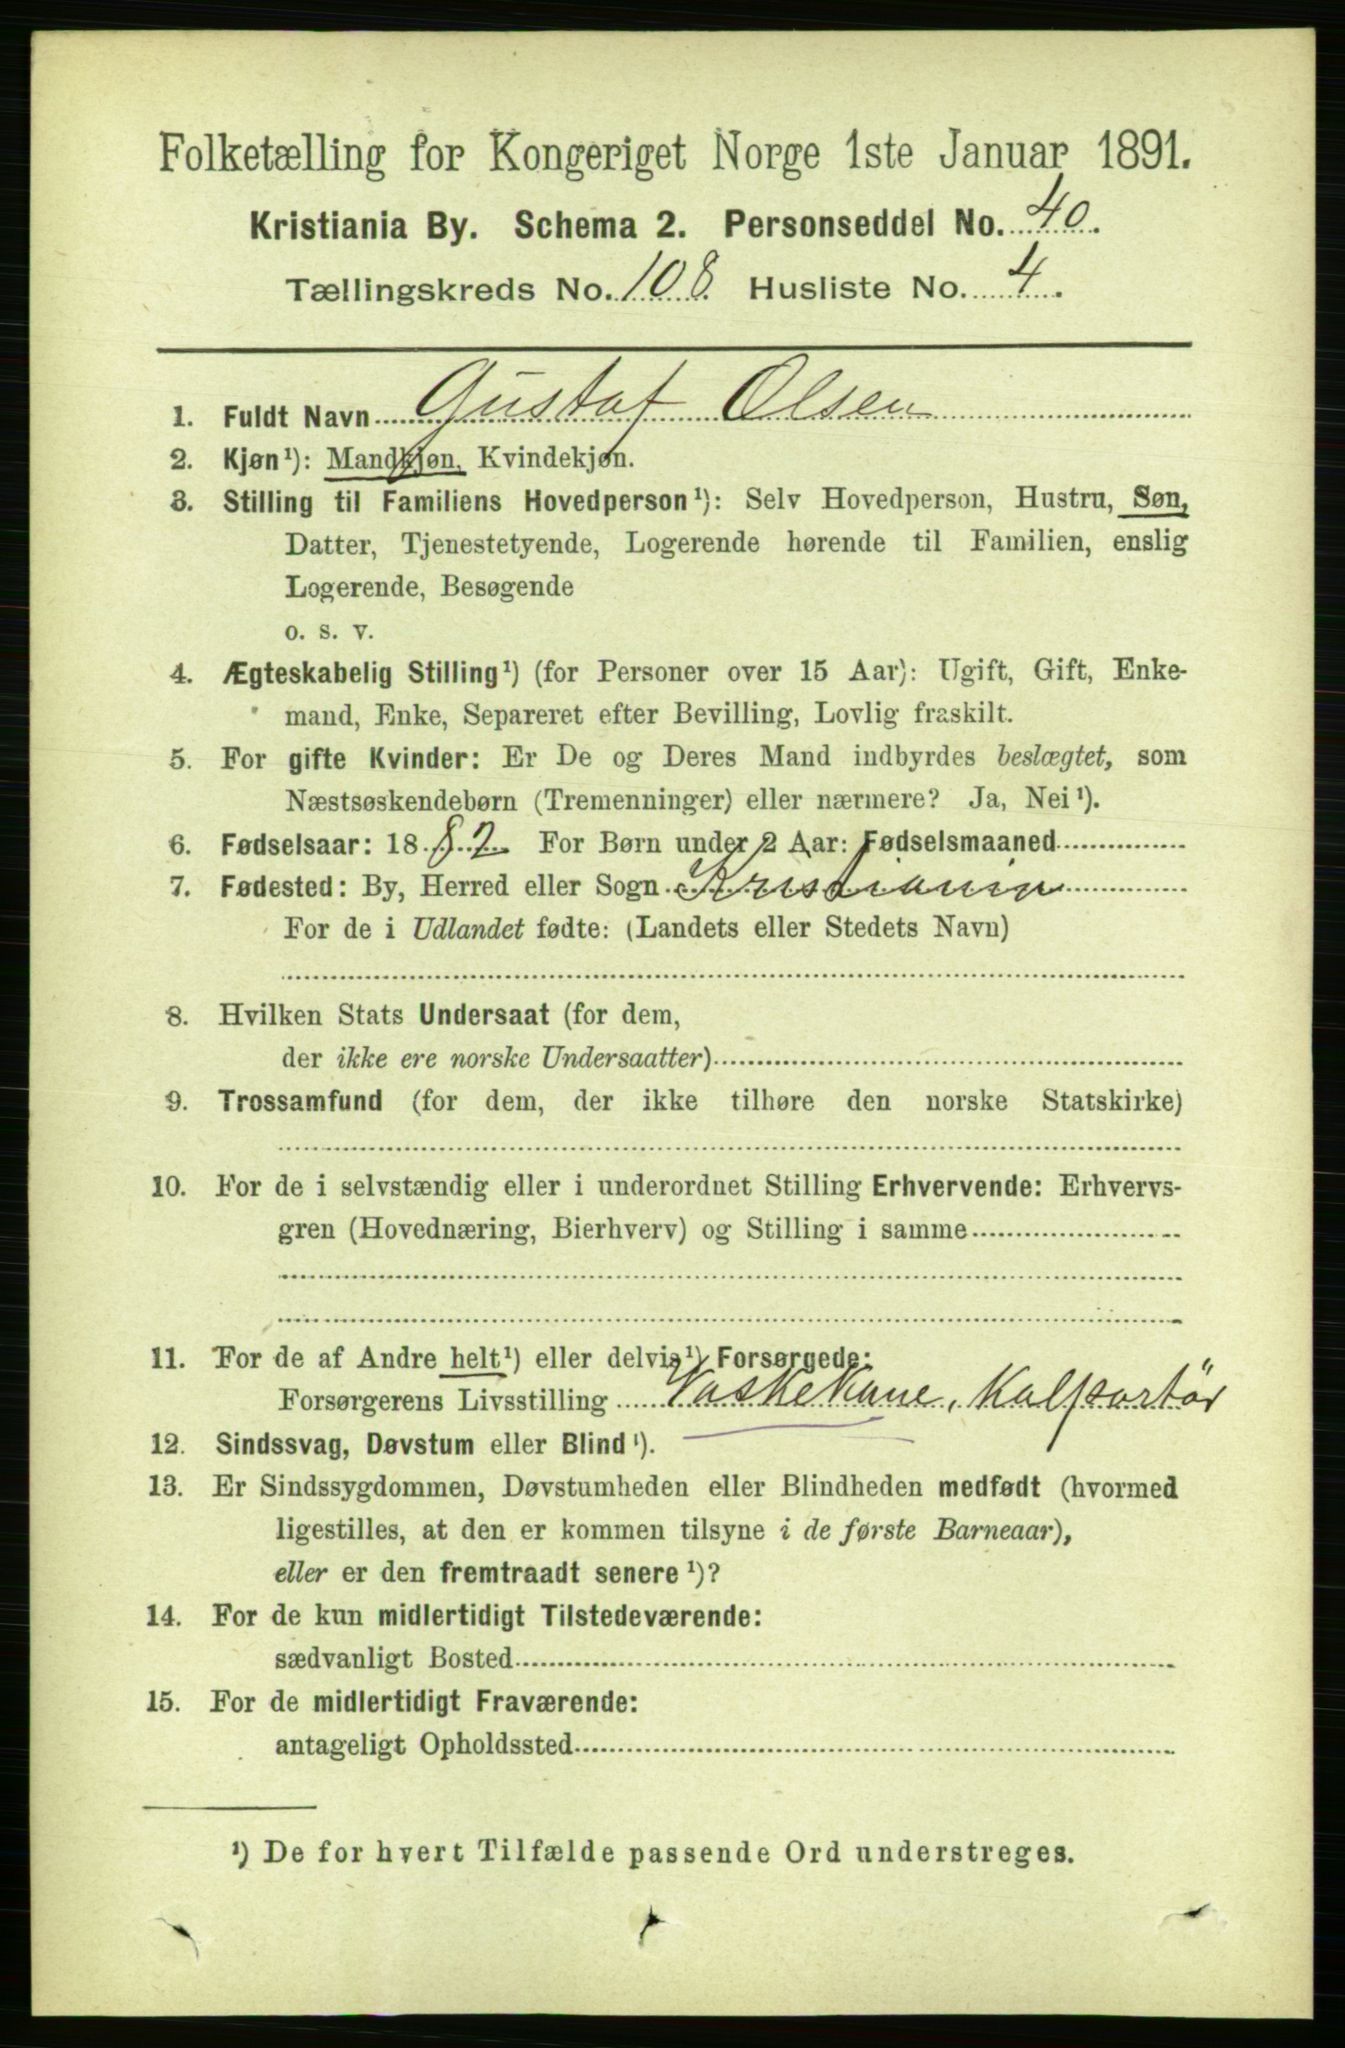 Folketælling for Kongeriget Norge 1ste Januar 1891.
Kristiania By. Schema 2. Personseddel No. 40.
Tællingskreds No. 108. Husliste No. 4.
1. Fuldt Navn Gustaf Olsen
2. Kjøn¹): Mandkjøn, Kvindekjøn.
3. Stilling til Familiens Hovedperson¹): Selv Hovedperson, Hustru, Søn,
Datter, Tjenestetyende, Logerende hørende til Familien, enslig
Logerende, Besøgende
o. s. v.
4. Ægteskabelig Stilling¹) (for Personer over 15 Aar): Ugift, Gift, Enke-
mand, Enke, Separeret efter Bevilling, Lovlig fraskilt.
5. For gifte Kvinder: Er De og Deres Mand indbyrdes beslægtet, som
Næstsøskendebørn (Tremenninger) eller nærmere? Ja, Nei¹).
6. Fødselsaar: 1882 For Børn under 2 Aar: Fødselsmaaned
7. Fødested: By, Herred eller Sogn Kristiania
For de i Udlandet fødte: (Landets eller Stedets Navn)
8. Hvilken Stats Undersaat (for dem,
der ikke ere norske Undersaatter)
9. Trossamfund (for dem, der ikke tilhøre den norske Statskirke)
10. For de i selvstændig eller i underordnet Stilling Erhvervende: Erhvervs-
gren (Hovednæring, Bierhverv) og Stilling i samme
11. For de af Andre helt¹) eller delvis¹) Forsørgede:
Forsørgerens Livsstilling Vaskekone, Kolportör
12. Sindssvag, Døvstum eller Blind¹).
13. Er Sindssygdommen, Døvstumheden eller Blindheden medfødt (hvormed
ligestilles, at den er kommen tilsyne i de første Barneaar),
eller er den fremtraadt senere¹)?
14. For de kun midlertidigt Tilstedeværende:
sædvanligt Bosted
15. For de midlertidigt Fraværende:
antageligt Opholdssted
¹) De for hvert Tilfælde passende Ord understreges.